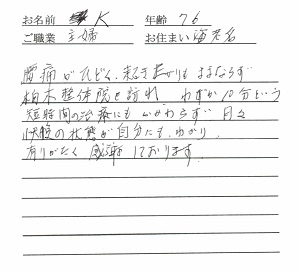 お名前 K 年齢 76
ご職業 主婦 お住まい 海老名
腰痛がひどく、起き上がりもままならず
柏木整体院を訪れ、わずか10分という
短時間の治療にもかかわらず 日々
快晩の状態が自分にも、わかり、
有りがたく 感謝しております。